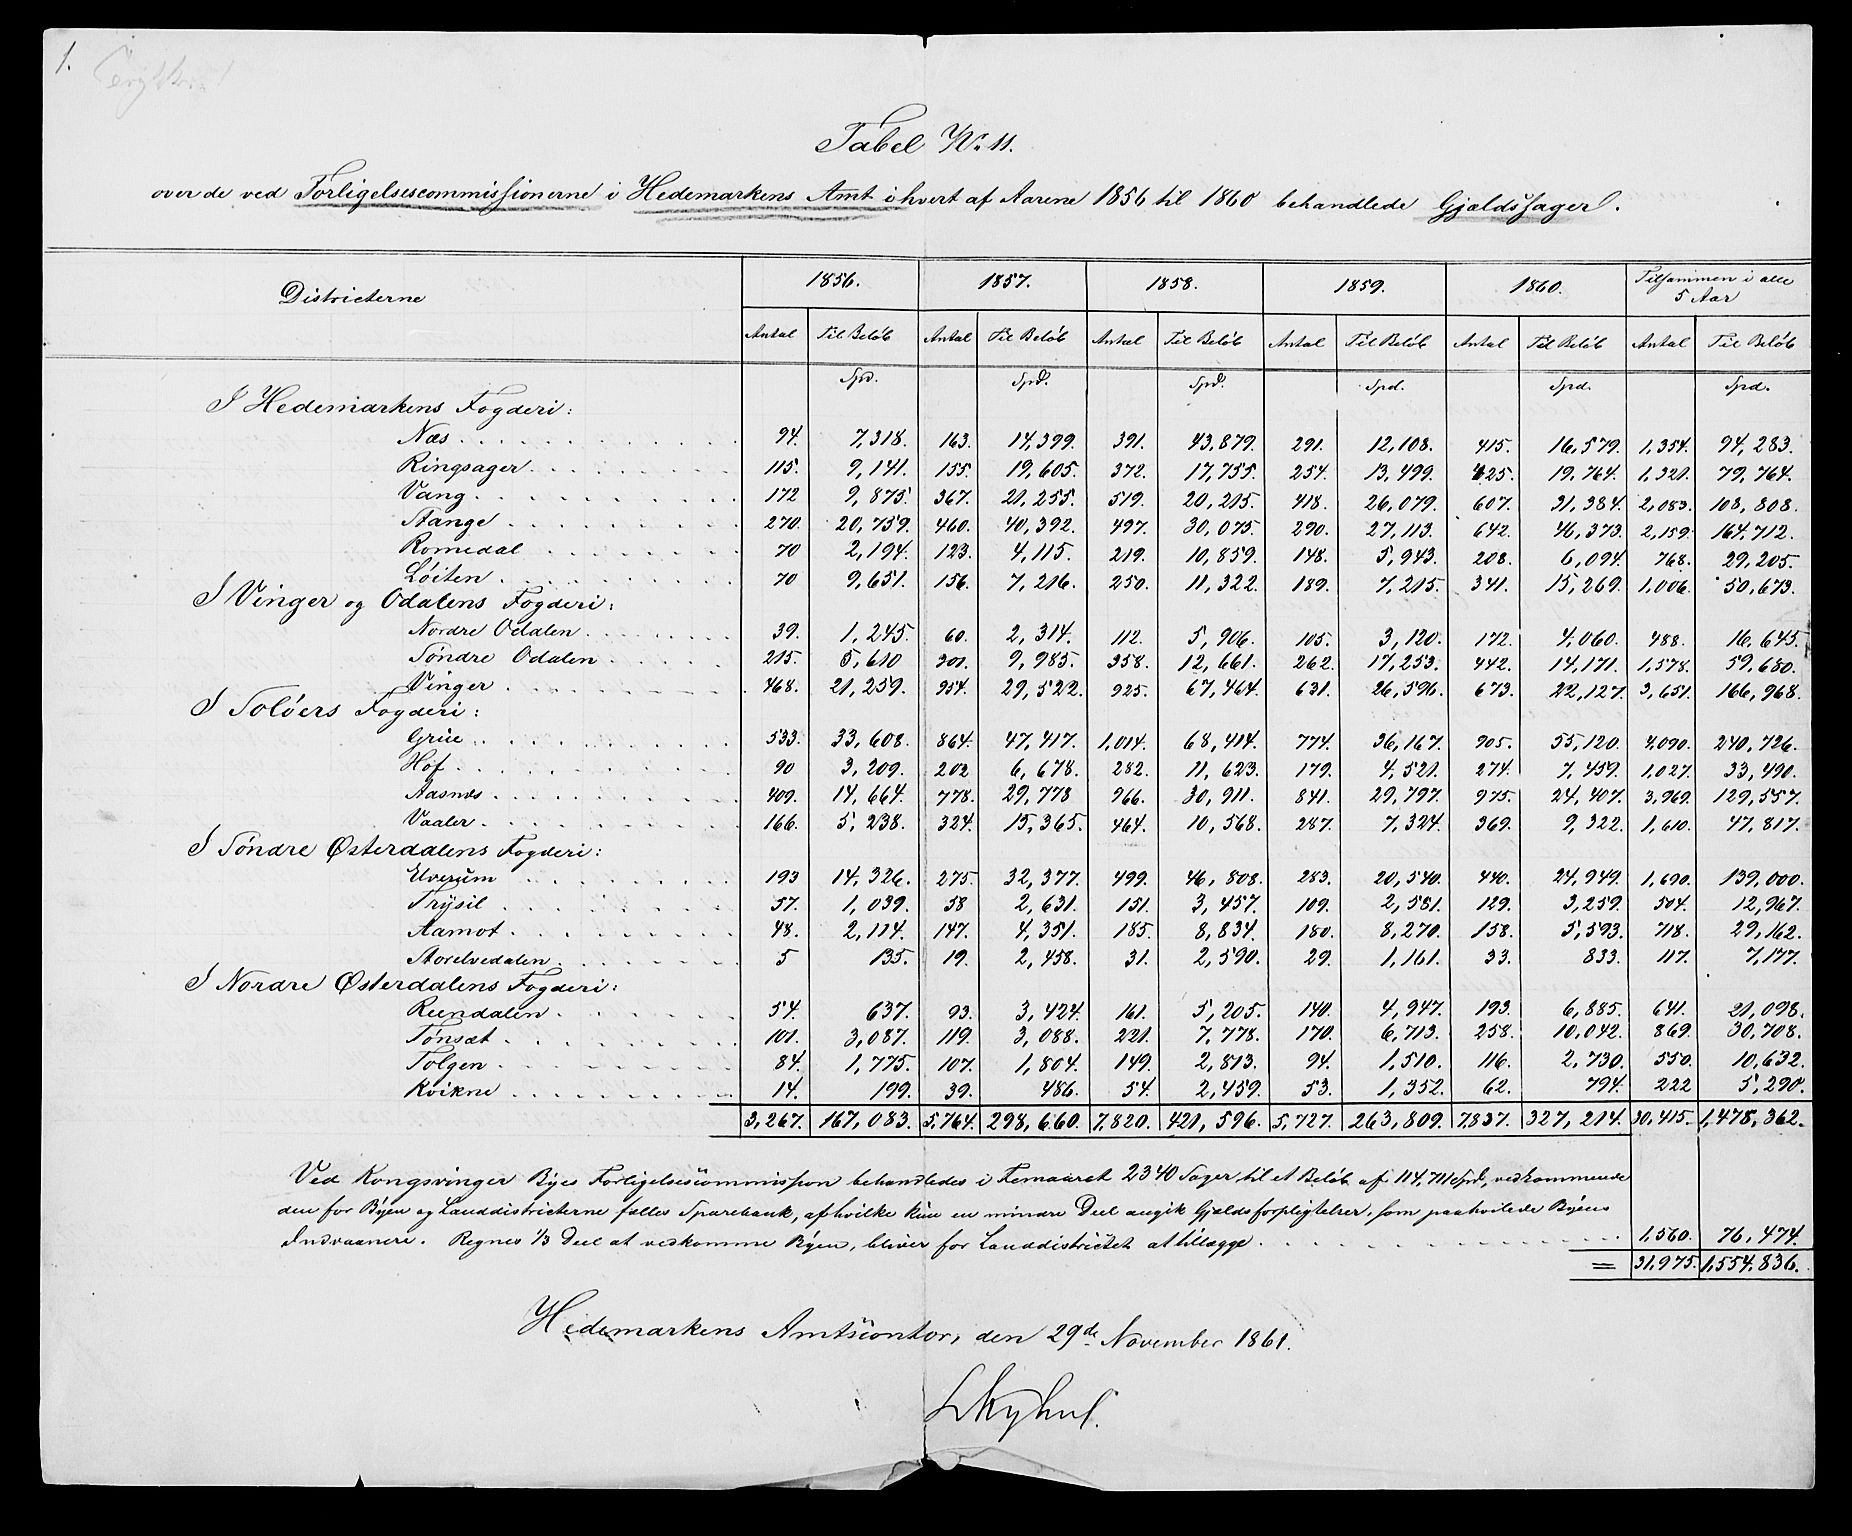 1.
Tabel No 11.
over de ved Forligelsescommissionerne i Hedemarkens Amt i hvert af Aarene 1856 til 1860 behandlede Gjældssager.
Districterne 1856. 1857. 1858. 1859. 1860. Tilsammen i alle 5 Aar
Antal Til Beløb Antal Til Beløb Antal Til Beløb Antal Til Beløb Antal Til Beløb Antal Til Beløb
Spd. Spd. Spd. Spd. Spd. Spd.
I Hedemarkens Fogderi:
Næs 94. 7,318. 163. 14,399. 391. 43,879. 291. 12,108. 415. 16,579. 1,354. 94,283.
Ringsager 115. 9,141. 155. 19,605. 372. 17,755. 254. 13,499. 425. 19,764. 1,321. 79,764.
Vang 172 9,875. 367. 21,255. 519. 20,215. 418. 26,079. 607. 31,384. 2,083. 108,808.
Stange 270. 20,759. 460. 40,392. 497. 30,075. 290. 27,113. 642. 46,373. 2,159. 164,712.
Romedal 70 2,194. 123. 4,115. 219. 10,859. 148. 5,943. 208. 6,094. 768. 29,205.
Løiten 70 9,651. 156. 7,216. 250. 11,322. 189. 7,215. 341. 15,269. 1,006. 50,673.
I Vinger og Odalens Fogderi:
Nordre Odalen 39. 1,245. 60. 2,314. 112. 5,906. 105. 3,120. 172. 4,060. 488. 16,645.
Søndre Odalen 215. 5,610 301. 9,985. 358. 12,661. 262. 17,253. 442. 14,171. 1,578. 59,680.
Vinger 468. 21,259. 954. 29,522. 925. 67,464. 631. 26,596. 673. 22,127. 3,651. 166,968.
I Soløers Fogderi:
Grüe 533. 33,608. 864. 47,417. 1,014. 68,414. 774. 36,167. 905. 55,120. 4,090. 240,726.
Hof 90 3,209. 202 6,678. 282. 11,623. 179. 4,521. 274. 7,459. 1,027. 33,490.
Aasnæs 409. 14,664. 778. 29,778 966. 30,911. 841. 29,797. 975. 24,407. 3,969. 129,557.
Vaaler 166. 5,238. 324. 15,365. 464. 10,568. 287. 7,324. 369. 9,322. 1,610. 47,817.
I Søndre Østerdalens Fogderi:
Elverum 193 14,326. 275. 32,377. 499. 46,808. 283. 20,540. 440. 24,949. 1,690. 139,000.
Trysil 57. 1,039. 58 2,631. 151. 3,457. 109. 2,581. 129. 3,259. 504. 12,967.
Aamot 48. 2,114. 147. 4,351. 185. 8,834. 180. 8,270. 158. 5,593. 718. 29,162.
Storelvedalen 5 135. 19. 2,458. 31. 2,590. 29. 1,161. 33. 833. 117. 7,177.
I Nordre Østerdalens Fogderi:
Rendalen 54. 637. 93. 3,424. 161. 5,205. 140. 4,947. 193. 6,885. 641. 21,098.
Tønsæt 101. 3,087. 119. 3,088. 221. 7,778. 170. 6,713. 258. 10,042. 869. 30,708.
Tolgen 84. 1,775. 107. 1,804. 149. 2,813. 94. 1,510. 116. 2,730. 550. 10,632.
Kvikne 14. 199. 39. 486. 54. 2,459. 53. 1,352. 62. 794. 222 5,290.
3,267. 167,083. 5,764. 298,660. 7,820. 421,596. 5,727. 263,809. 7,837. 327,214. 30,415. 1,478,362.
Ved Kongsvinger Byes Forligelsescommission behandledes i Femaaret 2340 Sager til et Beløb af 114,711 Spd, vedkommende
den for Byen og Landdistricterne fælles Sparebank, af hvilke kun en mindre Deel angik Gjældsforpligtelser, som paahvilede Byens
Indvaanere. Regnes 1/3 Deel at vedkomme Byen, bliver for Landdistrictet at tillægge 1,560. 76,474.
= 31,975. 1,554,836.
Hedemarkens Amtscontor, den 29de November 1861.